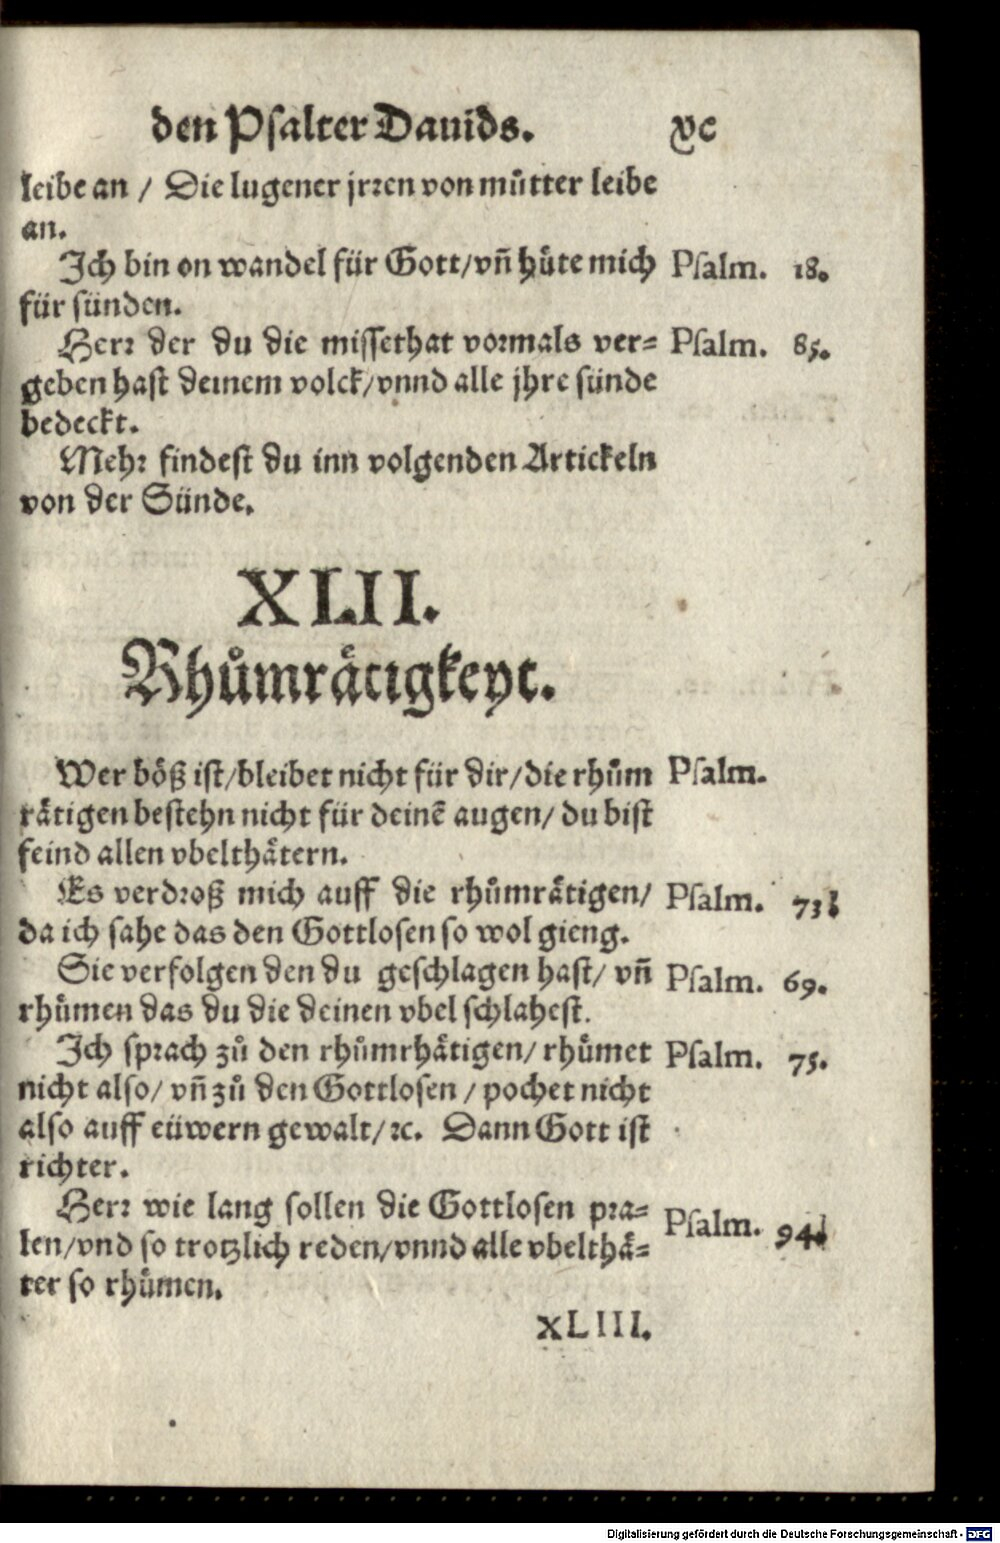 den Psalter Dauids. xc
leibe an / Die lugener jrren von můtter leibe
an.
Ich bin on wandel für Gott/vñ hüte mich Psalm. 18.
für sünden.
Herr der du die missethat vormals ver= Psalm. 85.
geben hast deinem volck/vnnd alle jhre sünde
bedeckt.
Mehr findest du inn volgenden Artickeln
von der Sünde.
XLII.
Rhůmrätigkeyt.
Wer böß ist/bleibet nicht für dir/die rhům Psalm.
rätigen bestehn nicht für deinē augen/ du bist
feind allen vbelthätern.
Es verdroß mich auff die rhůmrätigen/ Psalm. 73
da ich sahe das den Gottlosen so wol gieng.
Sie verfolgen den du geschlagen hast/ vñ Psalm. 69.
rhümen das du die deinen vbel schlahest.
Ich sprach zů den rhůmrhätigen/ rhümet Psalm. 75.
nicht also/ vñ zů den Gottlosen / pochet nicht
also auff eüwern gewalt/ꝛc. Dann Gott ist
richter.
Herr wie lang sollen die Gottlosen pra= Psalm. 94
len/vnd so trotzlich reden/vnnd alle vbelthä=
ter so rhümen.
XLIII.
Digitalisierung gefördert durch die Deutsche Forschungsgemeinschaft - DFG